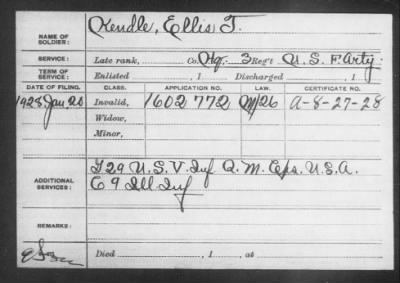 NAME OF SOLDIER: Kendle, Ellis T.
SERVICE: Late rank, Co. Hq. 3 Reg't U. S. F. Arty.
TERM OF SERVICE: Enlisted , 1 Discharged , 1
DATE OF FILING. CLASS. APPLICATION NO. LAW. CERTIFICATE NO.
1928 Jan 20 Invalid, 1602772 A-8-27-28
Widow,
Minor,
ADDITIONAL SERVICES: 29 U. S. V. Inf Q. M. Cps. U. S. A.
E 9 Ill Inf
REMARKS:
Died , 1 , at